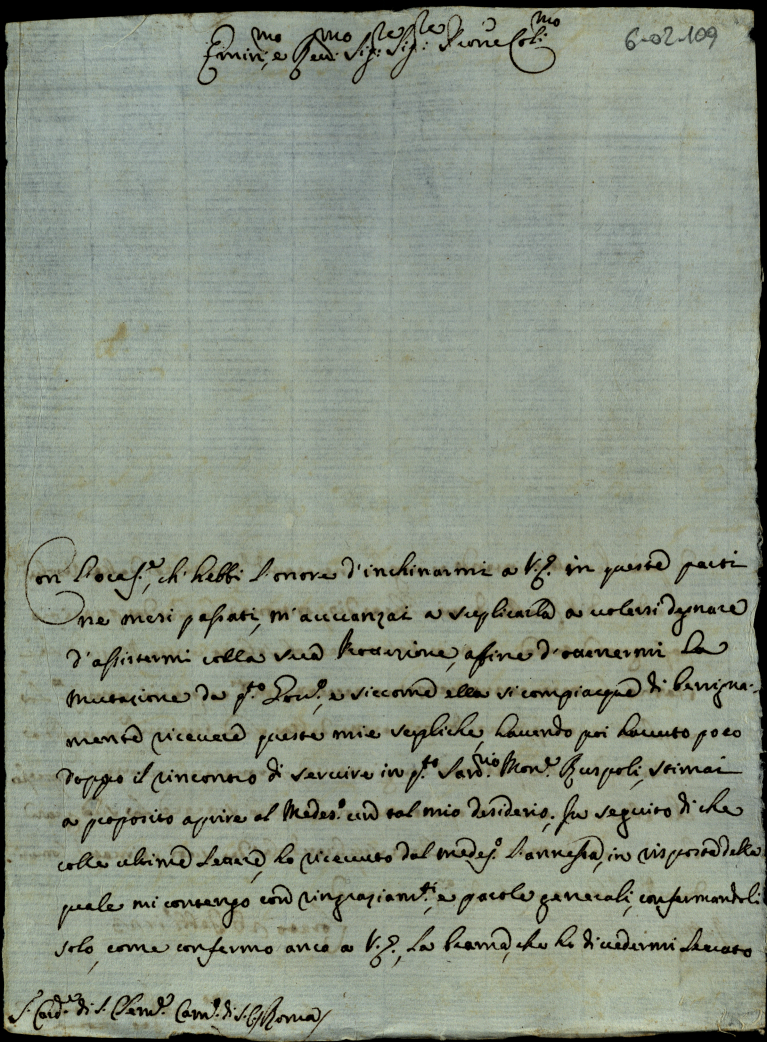 Emin:mo, e Reu:mo Sig:re Sig:re Pròne Col:mo
6-02-109
Con l'ocas:e, ch'hebbi l'onore d'inchinarmi a V:E: in queste parti
ne mesi passati, m'auuanzai a suplicarla a uolersi degnare
d'assistermi colla sua Protezione, affine d'ottenermi la
mutazione da q:to Gou:o, e siccome ella si compiacque di benigna-
mente riceuere queste mie supliche, hauendo poi hauuto poco
doppo il rincontro di seruire in q:to Mon:r Ruspoli, stimai
a proposito aprire al Medes:o un tal mio desiderio. In seguito di che
colle ultime lettere, ho riceuuto dal medes:o l'annessa, in risposta della
quale mi contengo con ringraziam:ti, e parole generali, confermandoli
solo, come confermo anco a V:E:, la brama, che ho di uedermi leuato
S:r Card:le di S. Clem:e Cam:o di S. C. Roma